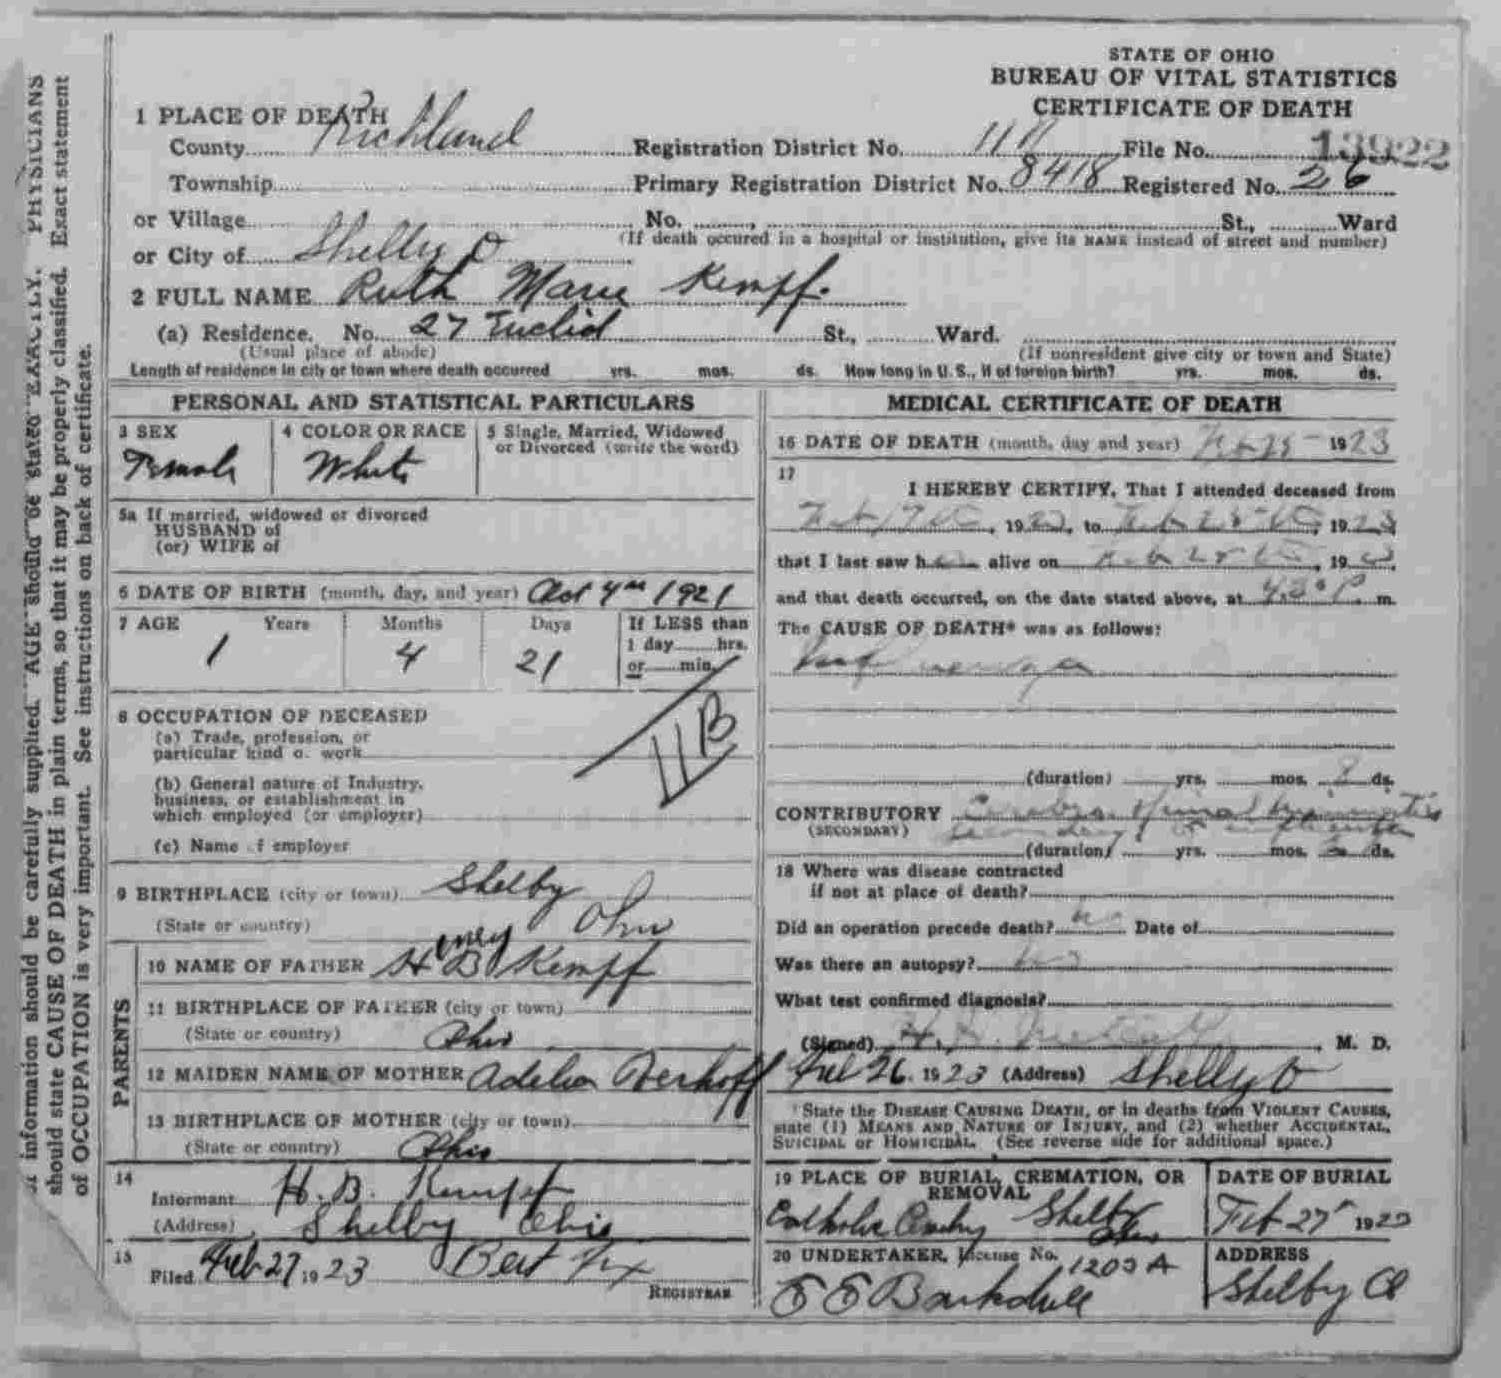 STATE OF OHIO
BUREAU OF VITAL STATISTICS
CERTIFICATE OF DEATH
1 PLACE OF DEATH
County Richland Registration District No. File No. 13922
Township Primary Registration District No. 8418 Registered No. 26
or Village No. St., Ward
(If death occured in a hospital or institution, give its NAME instead of street and number)
or City of Shelby O
2 FULL NAME Ruth Marie Kempf.
(a) Residence. No. 27 Euclid St., Ward.
(Usual place of abode) (If nonresident give city or town and State)
Length of residence in city or town where death occurred yrs. mos. ds. How long in U. S., if of foreign birth? yrs. mos. ds.
PERSONAL AND STATISTICAL PARTICULARS
3 SEX 4 COLOR OR RACE 5 Single, Married, Widowed
or Divorced (write the word)
Female White
5a If married, widowed or divorced
HUSBAND of
(or) WIFE of
6 DATE OF BIRTH (month, day, and year) Oct 4th 1921
7 AGE Years Months Days If LESS than
1 day hrs.
or min.
1 4 21
11B
8 OCCUPATION OF DECEASED
(a) Trade, profession, or
particular kind o. work
(b) General nature of Industry,
business, or establishment in
which employed (or employer)
(c) Name f employer
9 BIRTHPLACE (city or town) Shelby
(State or country) Ohio
PARENTS
10 NAME OF FATHER H B Kempf
11 BIRTHPLACE OF FATHER (city or town)
(State or country) Ohio
12 MAIDEN NAME OF MOTHER Adelia
13 BIRTHPLACE OF MOTHER (city or town)
(State or country) Ohio
14
Informant H. B. Kempf
(Address) Shelby Ohio
15
Filed Feb 27 1923 Bert Fix
REGISTRAR
MEDICAL CERTIFICATE OF DEATH
16 DATE OF DEATH (month, day and year) Feb 25 1923
17
I HEREBY CERTIFY, That I attended deceased from
Feb 17th, 1923, to Feb 25th, 1923
that I last saw her alive on Feb 25th, 1923,
and that death occurred, on the date stated above, at 4.30 P. m.
The CAUSE OF DEATH* was as follows:
Influenza
(duration) yrs. mos. 8 ds.
CONTRIBUTORY Cerebro Spinal Meningitis
(SECONDARY) secondary to influenza
(duration) yrs. mos. ds.
18 Where was disease contracted
if not at place of death?
Did an operation precede death? no Date of
Was there an autopsy? no
What test confirmed diagnosis?
(Signed) H. , M. D.
Feb 26, 1923 (Address) Shelby O
*State the DISEASE CAUSING DEATH, or in deaths from VIOLENT CAUSES,
state (1) MEANS AND NATURE OF INJURY, and (2) whether ACCIDENTAL,
SUICIDAL or HOMICIDAL. (See reverse side for additional space.)
19 PLACE OF BURIAL, CREMATION, OR
REMOVAL
DATE OF BURIAL
Catholic Cemetery Shelby Ohio Feb 27 1923
20 UNDERTAKER, License No. 1203 A ADDRESS
E E Barkdull Shelby O
of information should be carefully supplied. AGE should be stated EXACTLY. PHYSICIANS
should state CAUSE OF DEATH in plain terms, so that it may be properly classified. Exact statement
of OCCUPATION is very important. See instructions on back of certificate.